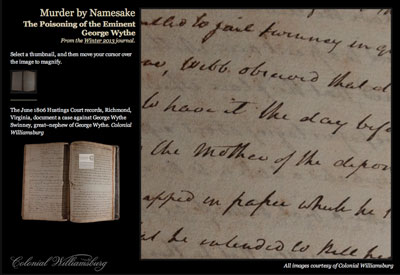 Murder by Namesake
The Poisoning of the Eminent
George Wythe
From the Winter 2013 journal.
Select a thumbnail, and then move your cursor over
the image to magnify.
The June 1806 Hustings Court records, Richmond,
Virginia, document a case against George Wythe
Swinney, great-nephew of George Wythe. Colonial
Williamsburg
Colonial Williamsburg
to jail Swinney in
Webb observed that
to have it the day befo
the Mother of the depon
apped in paper which he
at he intended to kill he
All images courtesy of Colonial Williamsburg